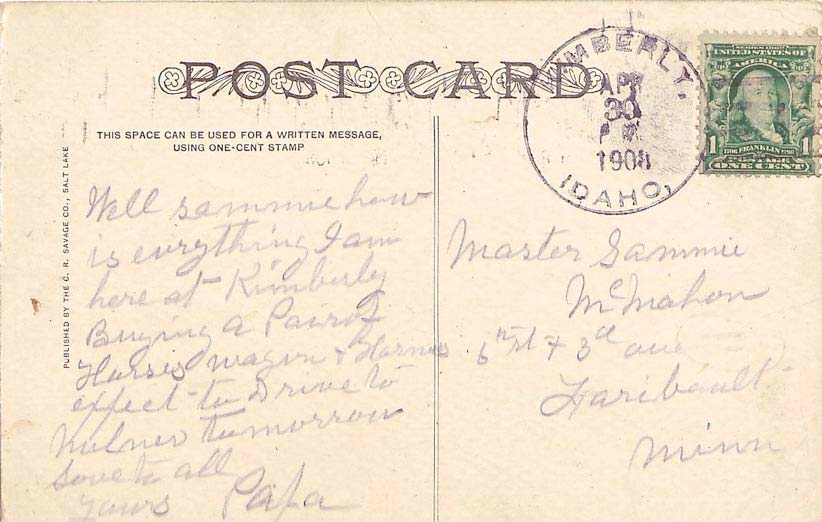 POST CARD
THIS SPACE CAN BE USED FOR A WRITTEN MESSAGE,
USING ONE-CENT STAMP
PUBLISHED BY THE C. R. SAVAGE CO., SALT LAKE
KIMBERLY,
APR
30
1908
IDAHO,
SERIES 1902
UNITED STATES OF
AMERICA
1706 FRANKLIN 1790
1 POSTAGE 1
ONE CENT
Well sammie how
is everything I am
here at Kimberly
Buying a Pair of
Horses wagon & Harness
expect to Drive to
Milner tomorrow
Love to all
Yours Papa
Master Sammie
McMahon
6th st & 3d ave
Faribault
Minn